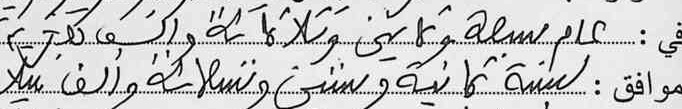 في : عام سبعة وثلاثين وثلاثمائة والف هجرية
موافق : لسنة ثمانية وستين وتسعمائة والف ميلا